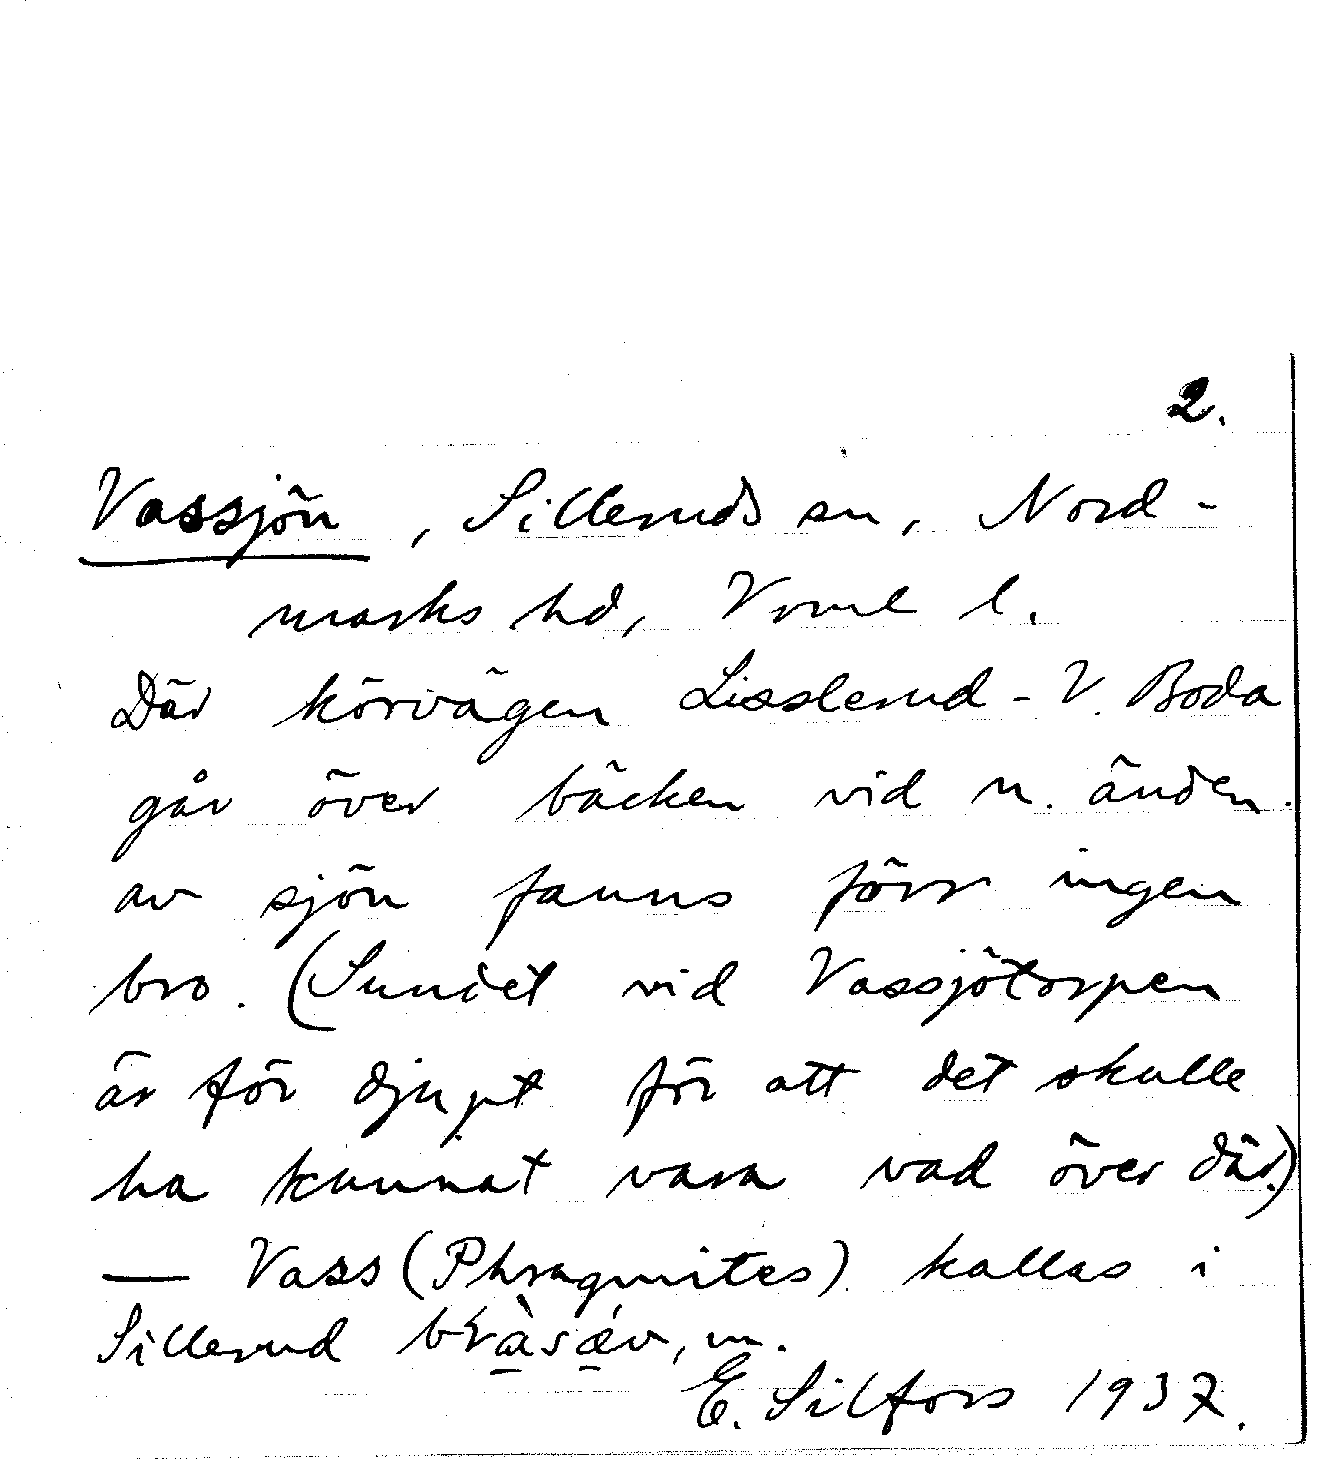 2.
Vassjön, Silleruds sn, Nord-
marks hd, Vrml l.
Där körvägen Lisslerud - V. Boda
går över bäcken vid n. änden
av sjön fanns förr ingen
bro. (Sundet vid Vassjötorpen
är för djupt för att det skulle
ha kunnat vara vad över där.)
— Vass (Phragmites) kallas i
Sillerud , m.
E. Silfors 1937.